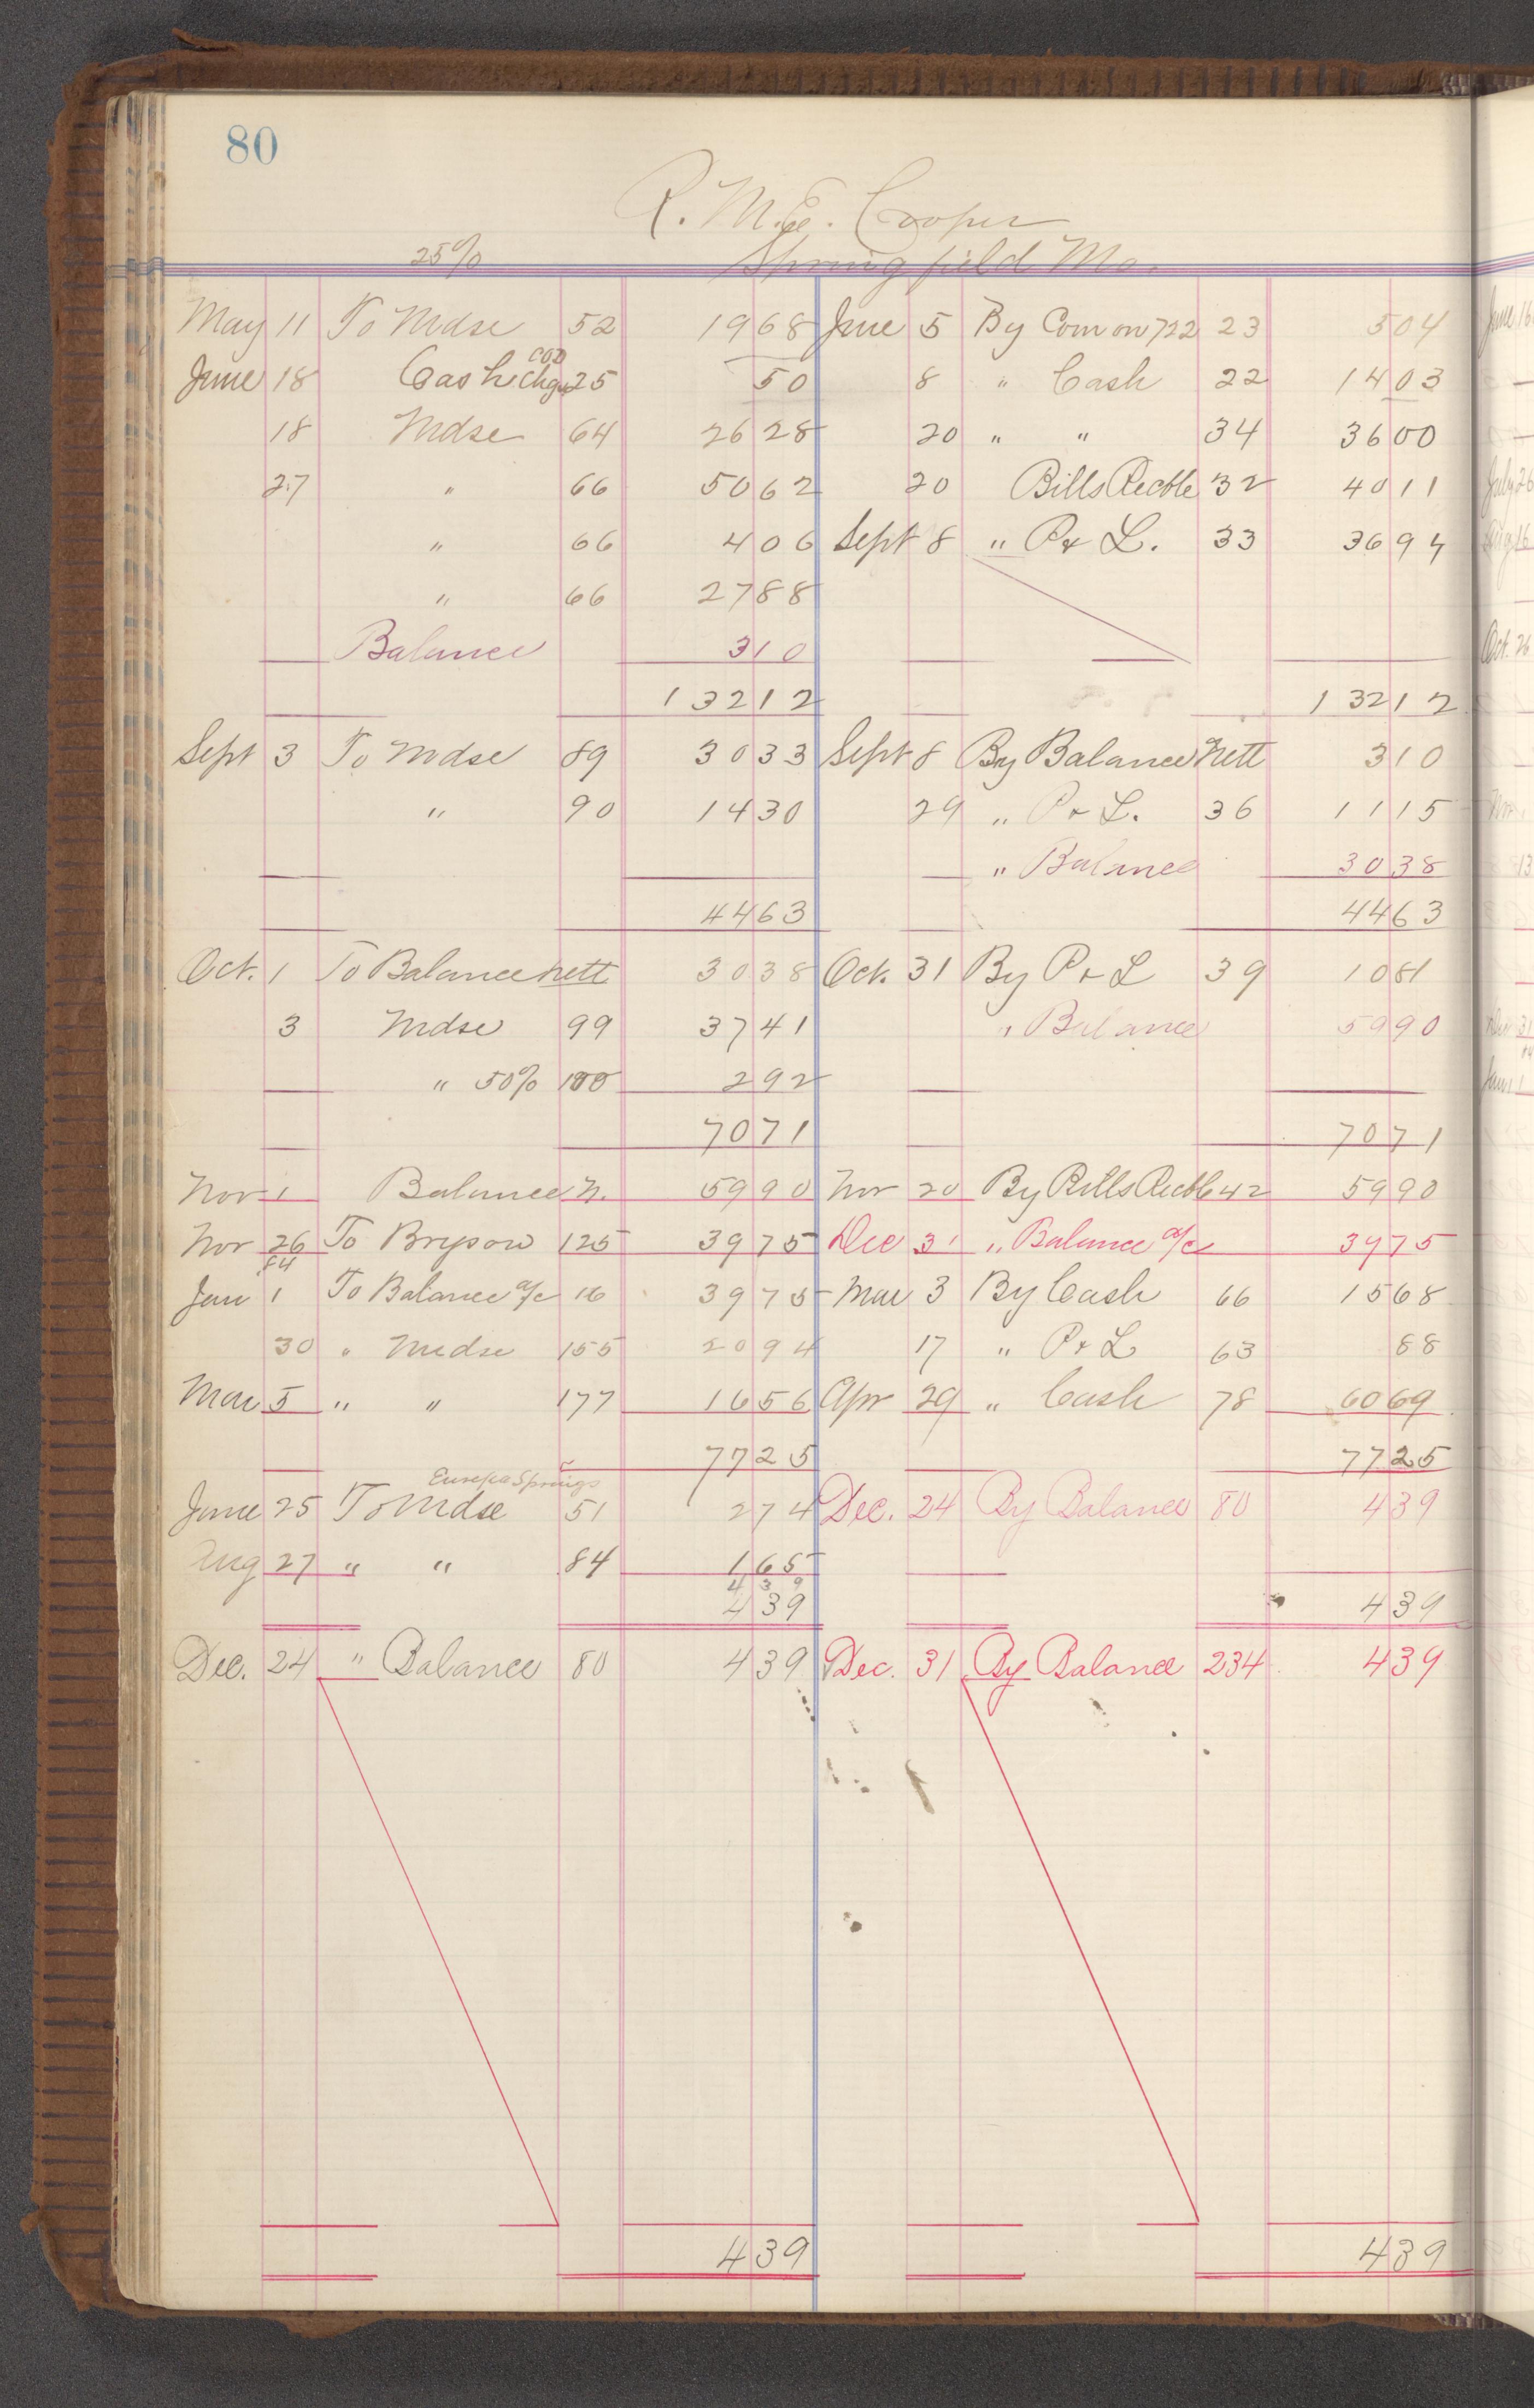 80
R. M. E. Cooper
25% Springfield Mo.
May 11 To Mdse 52 19 68 June 5 By Com on 722 23 5 04
June 18 Cash COD Chgs 25 50 8 " Cash 22 14 03
18 Mdse 64 26 28 20 " " 34 36 00
27 " 66 50 62 20 Bills Recble 32 40 11
" 66 4 06 Sept 8 " P & L. 33 36 94
" 66 27 88
Balance 3 10
132 12 132 12
Sept 3 To Mdse 89 30 33 Sept 8 By Balance Nett 3 10
" 90 14 30 29 " P & L. 36 11 15
" Balance 30 38
44 63 44 63
Oct. 1 To Balance nett 30 38 Oct. 31 By P & L 39 10 81
3 Mdse 99 37 41 " Balance 59 90
" 50% 100 2 92
70 71 70 71
Nov 1 Balance N. 59 90 Nov 20 By Bills Recble 42 59 90
Nov 26 To 125 39 75 Dec 31 " Balance a/c 39 75
84
Jan 1 To Balance a/c 16 39 75 Mar 3 By Cash 66 15 68
30 " Mdse 155 20 94 17 " P & L 63 88
Mar 5 " " 177 16 56 Apr 29 " Cash 78 60 69
77 25 77 25
Eureka Springs
June 25 To Mdse 51 2 74 Dec. 24 By Balance 80 4 39
Aug 27 " " 84 1 65
4 3 9
4 39 4 39
Dec. 24 " Balance 80 4 39 Dec. 31 By Balance 234 4 39
4 39 4 39